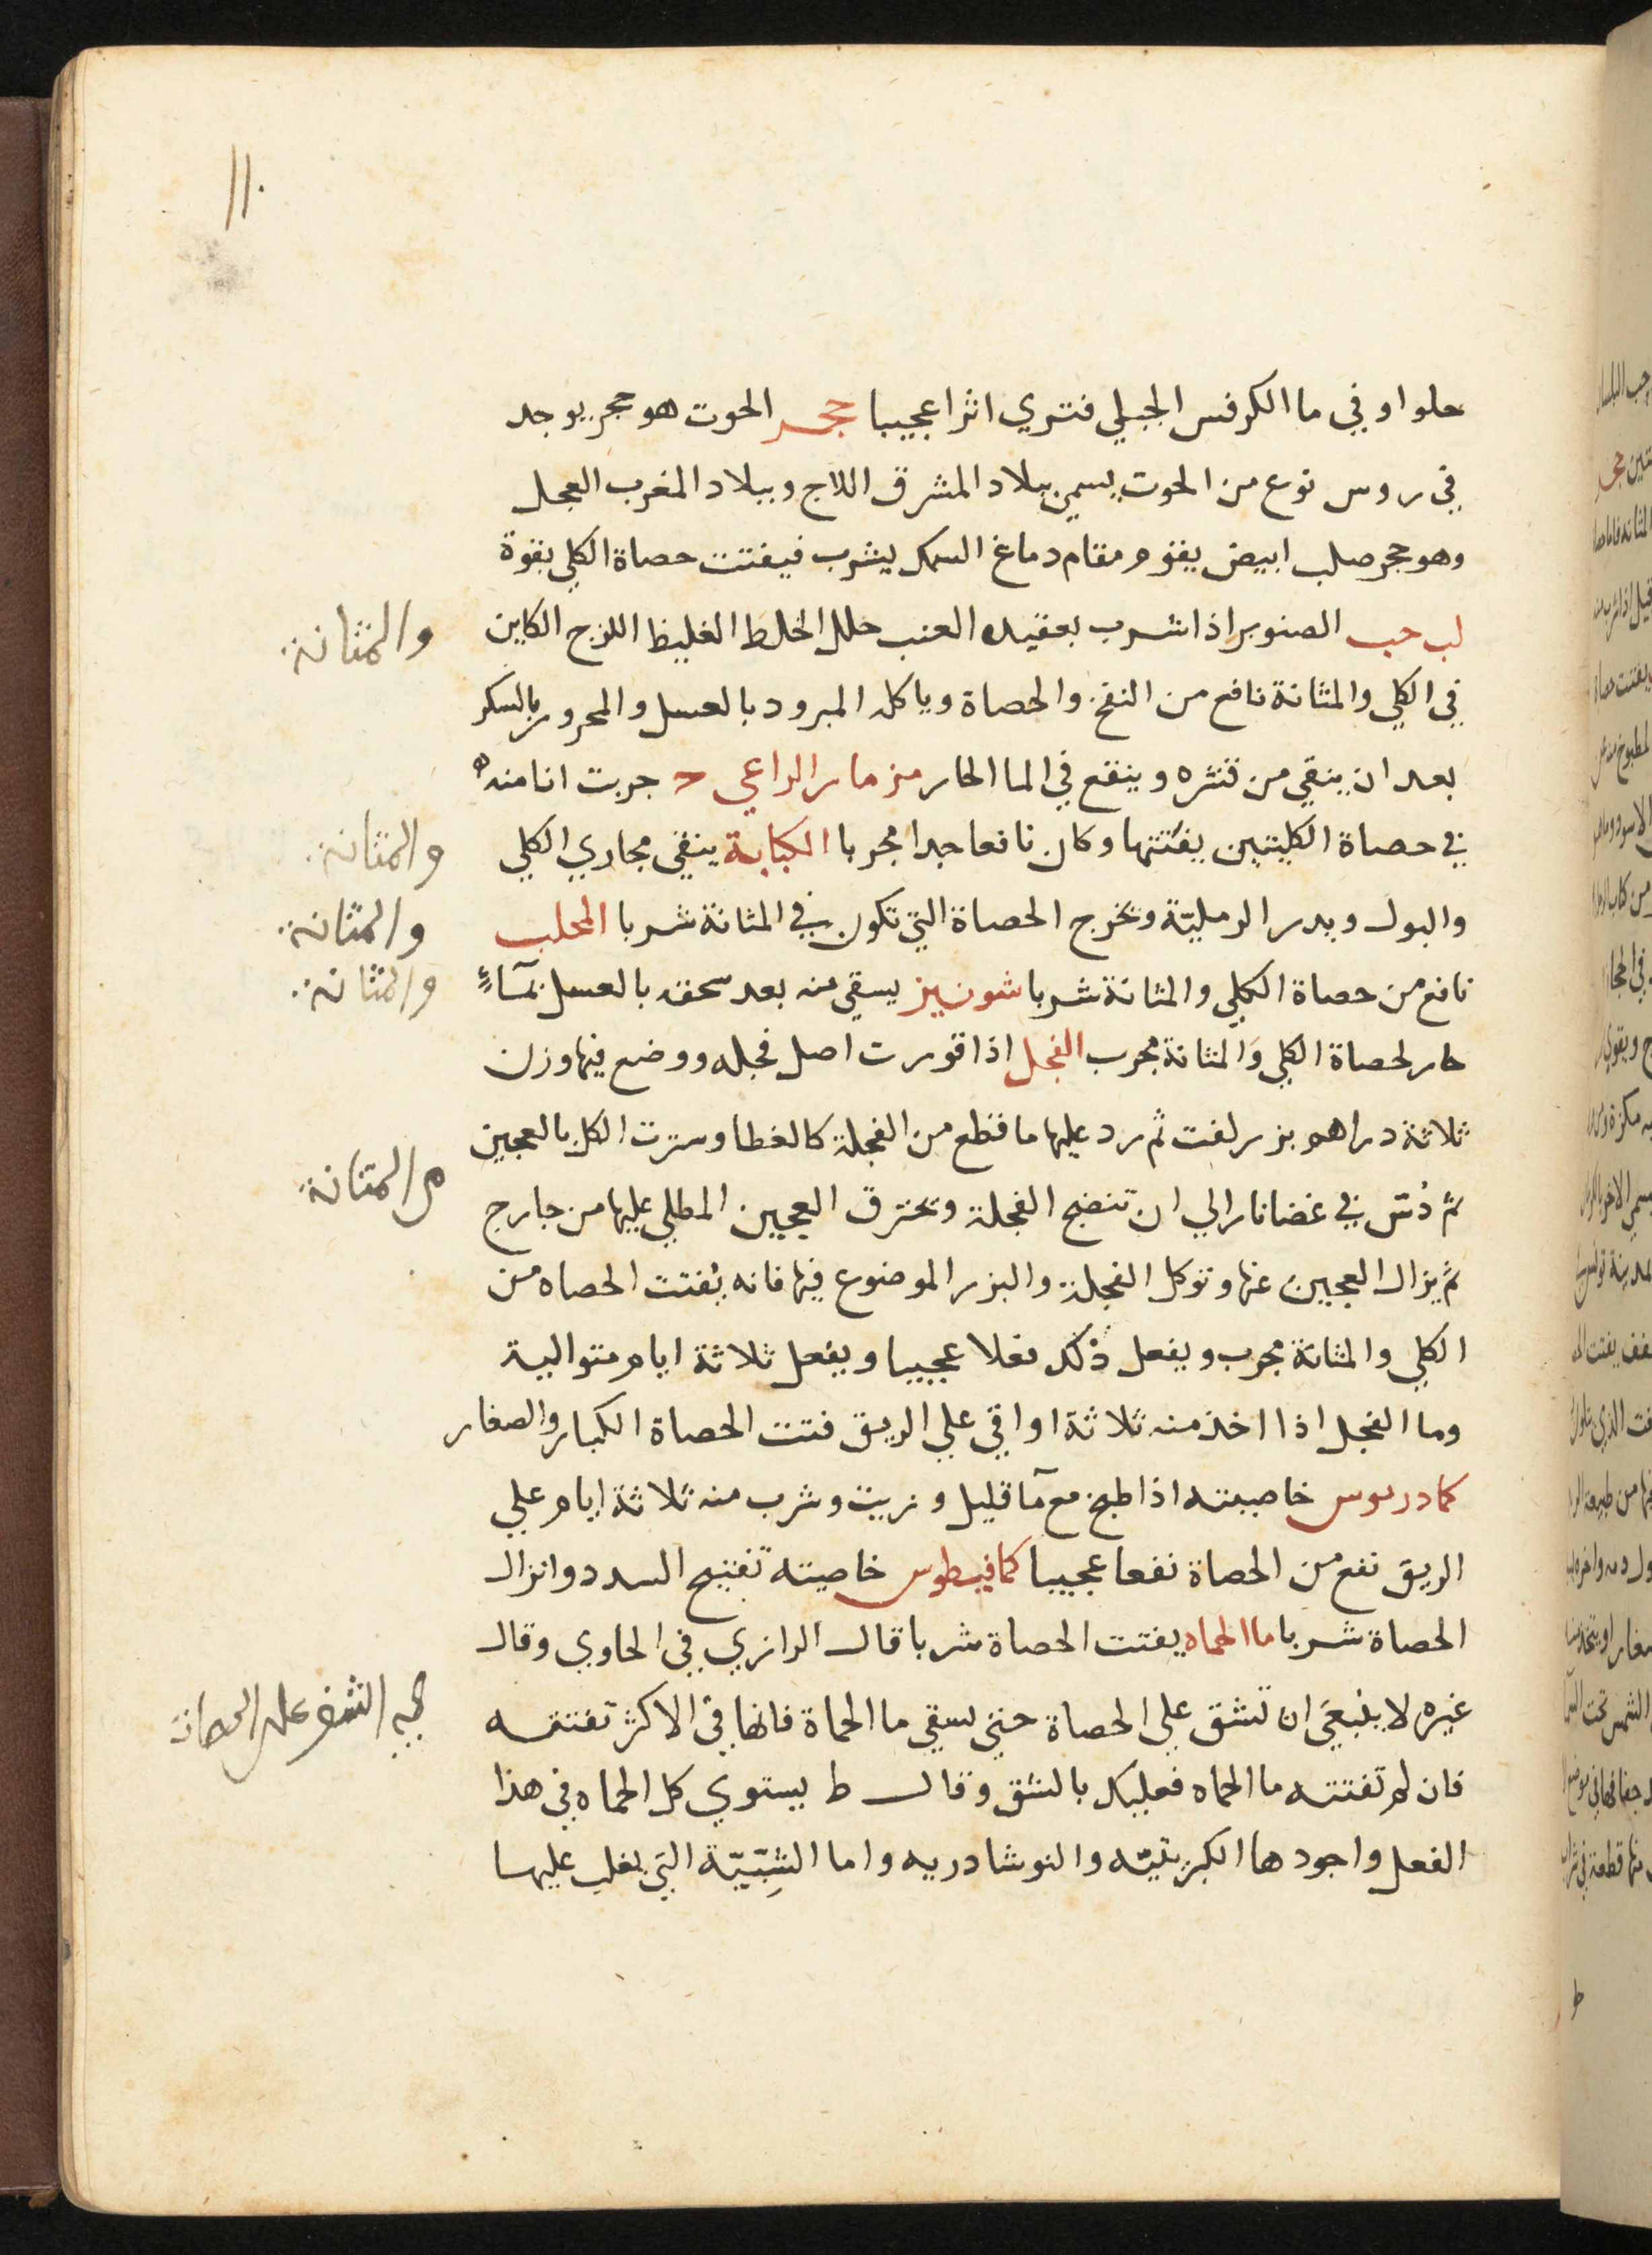 ١١٠
حلوا وفي ما الكرفس الجبلي فتري اثرا عجيبا حجر الحوت هو حجر يوجد
في روس نوع من الحوت يسمي ببلاد المشرق اللاج وببلاد المغرب العجل
وهو حجر صلب ابيض يقوم مقام دماغ السمك يشرب فيفتت حصاة الكلي بقوة
والمثانة
لب حب الصنوبر اذا شرب بعقيد العنب حلل الخلط الغليظ اللزج الكاين
في الكلي والمثانة نافع من النفخ والحصاة وياكله المبرود بالعسل والمحرور بالسكر
بعد ان ينقي من قشره وينقع في الما الحار مزمار الراعي جربت انا منه
والمثانة
في حصاة الكليتين يفتتها وكان نافعا جدا مجربا الكبابة ينقي مجاري الكلي
والمثانة
والبول ويدر الرملية ويخرج الحصاة التي تكون في المثانة شربا المحلب
والمثانة
نافع من حصاة الكلي والمثانة شربا شونيز يسقي منه بعد سحقه بالعسل بمآءٍ
حار لحصاة الكلي والمثانة مجرب الفجل اذا قورت اصل فجله ووضع فيها وزن
ثلاثة دراهم بزر لفت ثم رد عليها ما قطع من الفجلة كالغطا وسترت الكل بالعجين
م المثانة
ثم دُسّ في غضا نار الي ان تنضج الفجلة ويحترق العجين المطلي عليها من خارج
ثم يزال العجين عنها وتوكل الفجلة والبزر الموضوع فيها فانه يفتت الحصاه من
الكلي والمثانة مجرب ويفعل ذلك فعلا عجيبا ويفعل ثلاثة ايام متوالية
وما الفجل اذا اخذ منه ثلاثة اواقي علي الريق فتت الحصاة الكبار والصغار
كمادريوس خاصيته اذا طبخ مع مآ قليل وزيت وشرب منه ثلاثة ايام علي
الريق نفع من الحصاة نفعا عجيبا كمافيطوس خاصيته تفتيح السدد وانزال
الحصاة شربا ما الحماه يفتت الحصاة شربا قال الرازي في الحاوي وقال
غيره لا ينبغي ان تشق علي الحصاة حتي يسقي ما الحماة فانها في الاكثر تفتته
فان لم تفتته ما الحماه فعليك بالشق وقال ط يستوي كل الحماه في هذا
الفعل واجودها الكبريتيه والنوشادريه واما الشبّيّة التي يغلب عليها